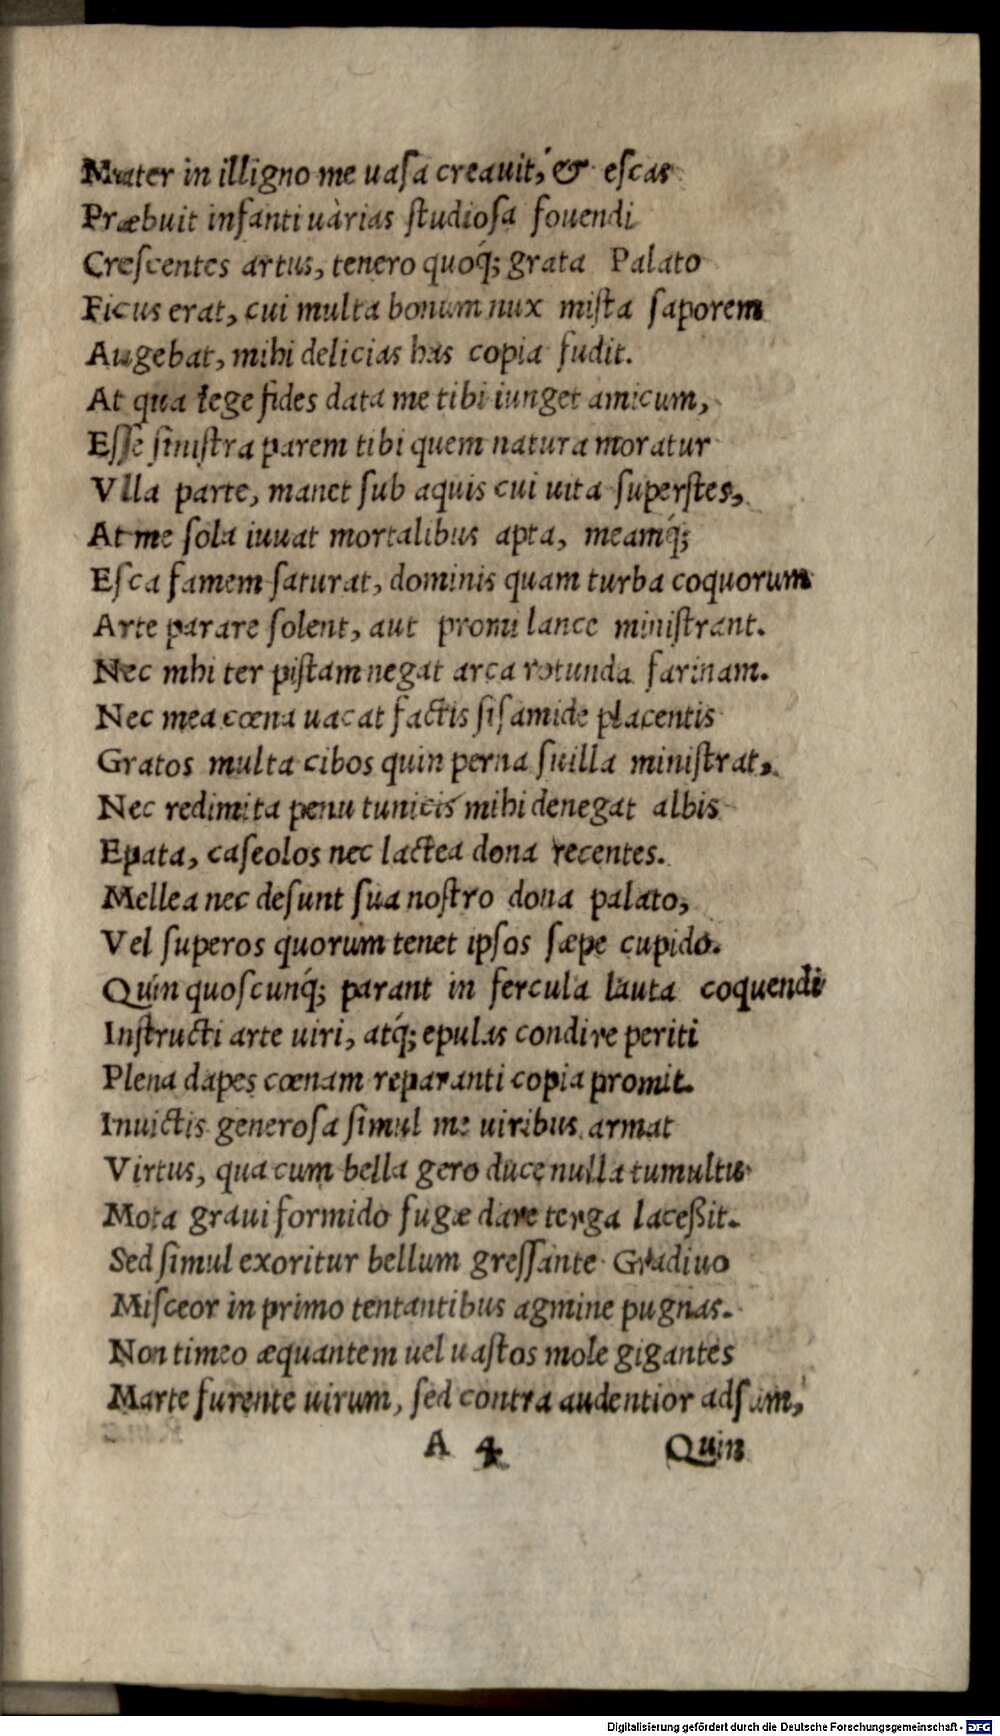 Mater in illigno me uaſa creauit, & eſcas
Præbuit infanti uàrias ſtudioſa fouendi
Creſcentes artus, tenero quoq́; grata Palato
Ficus erat, cui multa bonum nux miſta ſaporem
Augebat, mihi delicias has copia fudit.
At qua lege fides data me tibi iunget amicum,
Eſſe ſiniſtra parem tibi quem natura moratur
Vlla parte, manet ſub aquis cui uita ſuperſtes,
At me ſola iuuat mortalibus apta, meamq́;
Eſca famem ſaturat, dominis quam turba coquorum
Arte parare ſolent, aut promi lance miniſtrant.
Nec mhi ter piſtam negat arca rotunda farinam.
Nec mea cœna uacat factis ſiſamide placentis
Gratos multa cibos quin perna ſuilla miniſtrat,
Nec redimita penu tunicis mihi denegat albis
Epata, caſeolos nec lactea dona recentes.
Mellea nec deſunt ſua noſtro dona palato,
Vel ſuperos quorum tenet ipſos ſæpe cupido.
Quin quoſcunq́; parant in fercula lauta coquendi
Inſtructi arte uiri, atq́; epulas condire periti
Plena dapes cœnam reparanti copia promit.
Inuictis generoſa ſimul me uiribus armat
Virtus, qua cum bella gero duce nulla tumultu
Mota graui formido fugæ dare terga laceßit.
Sed ſimul exoritur bellum greſſante Gradiuo
Miſceor in primo tentantibus agmine pugnas.
Non timeo æquantem uel uaſtos mole gigantes
Marte furente uirum, ſed contra audentior adſum,
A 4 Quin
Digitalisierung gefördert durch die Deutsche Forschungsgemeinschaft - DFG